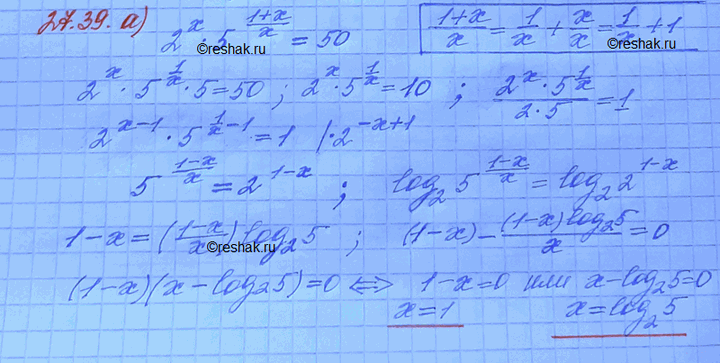 27.39. а) 2^x · 5^((1+x)/x) = 50    (1+x)/x = 1/x + x/x = 1/x + 1
©reshak.ru
2^x · 5^(1/x) · 5 = 50 ; 2^x · 5^(1/x) = 10 ; (2^x · 5^(1/x))/(2·5) = 1
2^(x-1) · 5^(1/x - 1) = 1 | · 2^(-x+1)
5^((1-x)/x) = 2^(1-x) ; log₂ 5^((1-x)/x) = log₂ 2^(1-x)
1-x = ((1-x)/x) log₂ 5 ; (1-x) - ((1-x) log₂ 5)/x = 0
©reshak.ru
(1-x)(x - log₂ 5) = 0 ⟺ 1-x = 0 или x - log₂ 5 = 0
x = 1    x = log₂ 5